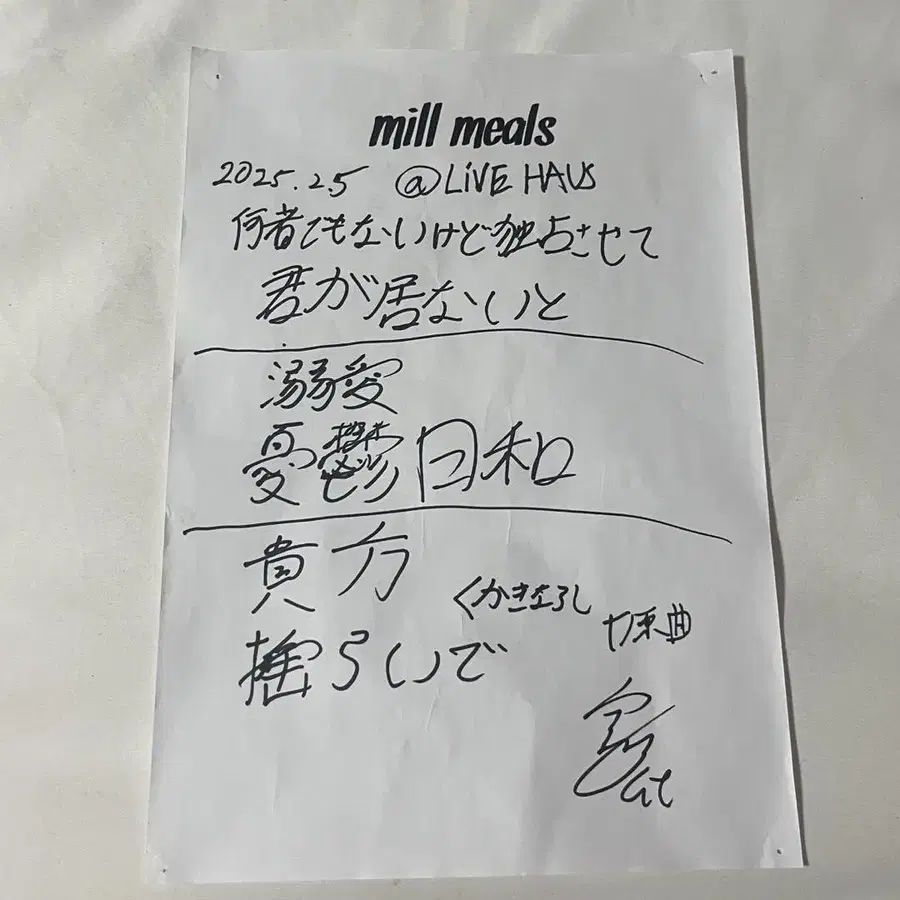 mill meals
2025.2.5 @LiVE HAUS
何者でもないけど独占させて
君が居ないと
溺愛
憂鬱日和
貴方
くかきなろし
揺らいで